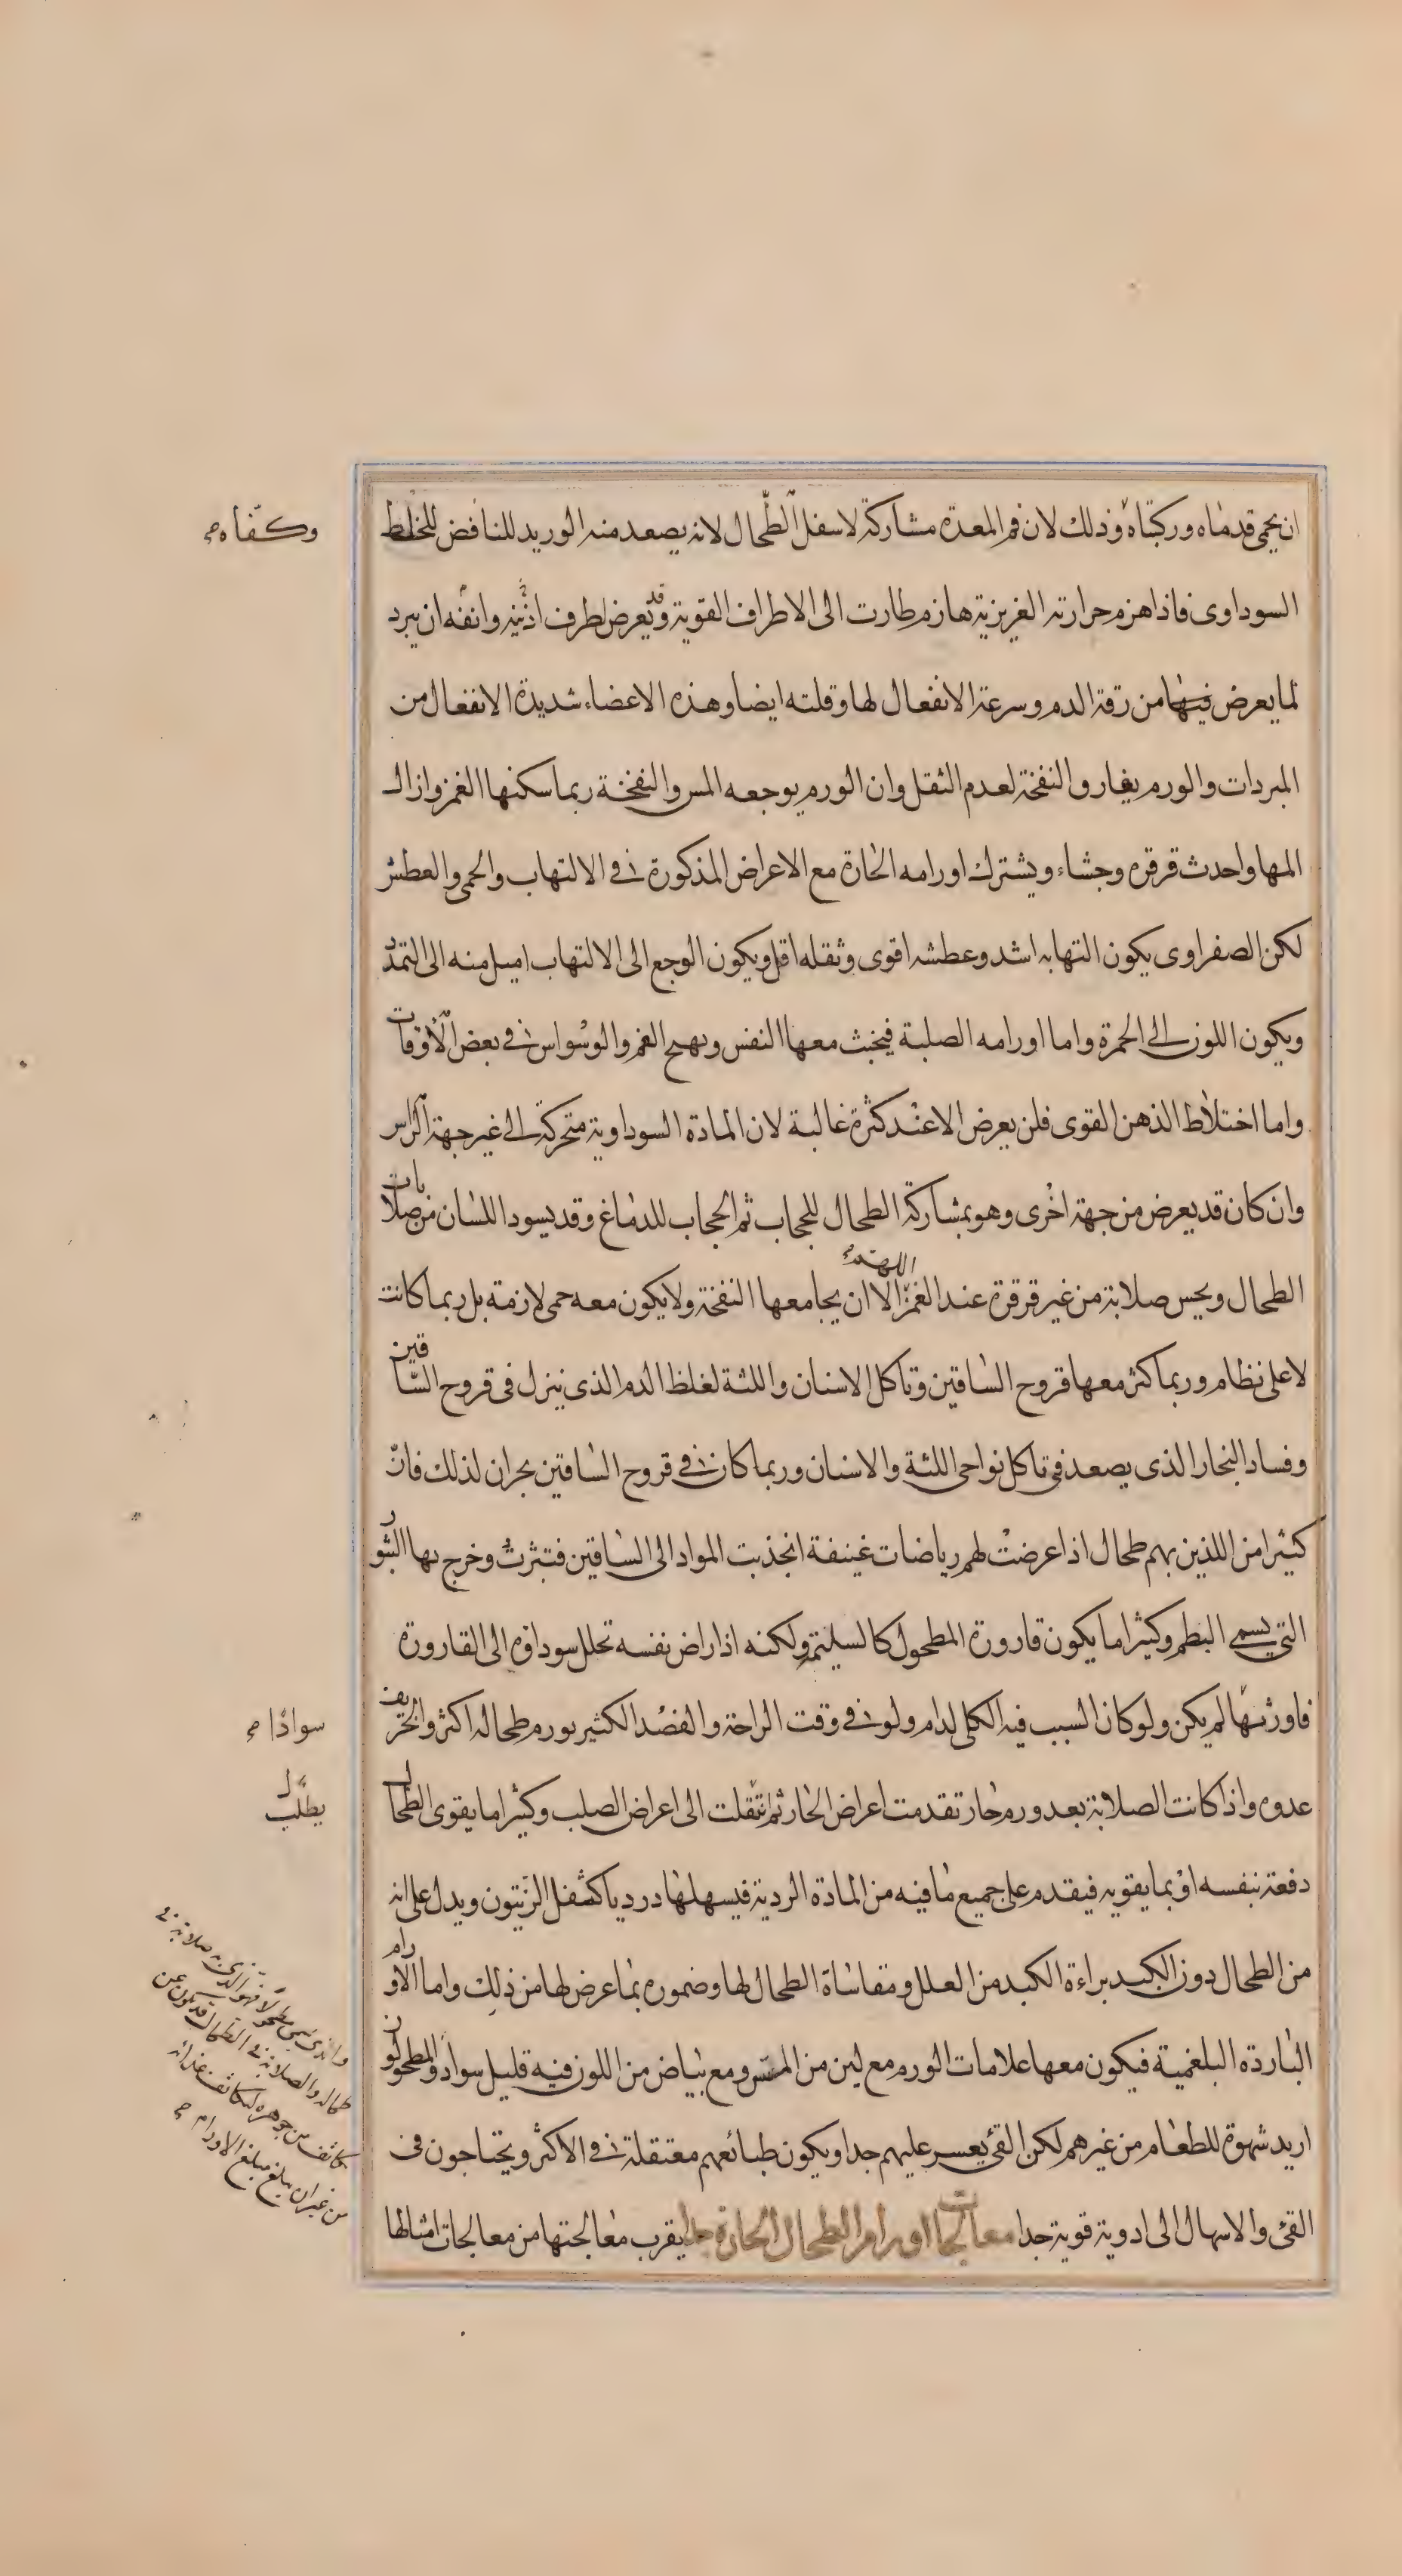 ان يحمى قدماه وركبتاه وذلك لان فم المعدة مشاركة لاسفل الطحال لانه يصعد منه الوريد للنافض للخلط
وكفاه صح
السوداوى فاذا هزم حرارته الغريزية هازم طارت الى الاطراف القوية وقد يعرض لطرف اذنيه وانفه ان يبرد
لما يعرض فيها من رقة الدم وسرعة الانفعال لها وقلته ايضا وهذه الاعضاء شديدة الانفعال من
المبردات والورم يفارق النفخة لعدم الثقل وان الورم يوجعه المس والنفخة ربما سكنها الغمز وازال
المها واحدث قرقرة وجشاء ويشترك اورامه الحارة مع الاعراض المذكورة فى الالتهاب والحمى والعطش
لكن الصفراوى يكون التهابه اشد وعطشه اقوى وثقله اقل ويكون الوجع الى الالتهاب اميل منه الى التمدد
ويكون اللون الى الحمرة واما اورامه الصلبة فيخبث معها النفس ويهيج الغم والوسواس فى بعض الاوقات
واما اختلاط الذهن القوى فلن يعرض الا عند كثرة غالبة لان المادة السوداوية متحركة الى غير جهة الراس
وان كان قد يعرض من جهة اخرى وهو بمشاركة الطحال للحجاب ثم الحجاب للدماغ وقد يسود اللسان من صلابات
الطحال ويحس صلابة من غير قرقرة عند الغمز اللهم الا ان يجامعها النفخة ولا يكون معه حمى لازمة بل ربما كانت
لا على نظام وربما كثر معها قروح الساقين وتاكل الاسنان واللثة لغلظ الدم الذى ينزل فى قروح الساقين
وفساد البخار الذى يصعد فى تاكل نواحى اللثة والاسنان وربما كان فى قروح الساقين بحران لذلك فان
كثيرا من اللذين بهم طحال اذا عرضت لهم رياضات عنيفة انجذبت المواد الى الساقين فتبثرت وخرج بها البثور
التى يسمى البطم وكثيرا ما يكون قارورة المطحول كالسليمة ولكنه اذا راض نفسه تحلل سوداؤه الى القارورة
فاورثها لم يكن ولو كان السبب فيه الكلى لدام ولو فى وقت الراحة والفصد الكثير يورم طحاله اكثر والخريف
سوادا صح
عدوه واذا كانت الصلابة بعد ورم حار تقدمت اعراض الحار ثم انتقلت الى اعراض الصلب وكثيرا ما يقوى الطحال
دفعة بنفسه او بما يقويه فيقدم على جميع ما فيه من المادة الردية فيسهلها درديا كثفل الزيتون ويدل على انه
من الطحال دون الكبد براءة الكبد من العلل ومقاساة الطحال لها وضموره بما عرض لها من ذلك واما الاورام
الباردة البلغمية فيكون معها علامات الورم مع لين من المس ومع بياض من اللون فيه قليل سواد والمطحولون
اريد شهوة للطعام من غيرهم لكن القئ يعسر عليهم جدا ويكون طبائعهم معتقلة فى الاكثر ويحتاجون فى
القئ والاسهال الى ادوية قوية جدا معالجات اورام الطحال الحارة يقرب معالجتها من معالجات امثالها
طحاله والصلابة فى الطحال قد يكون عن
من غير ان يبلغ مبلغ الاورام صح